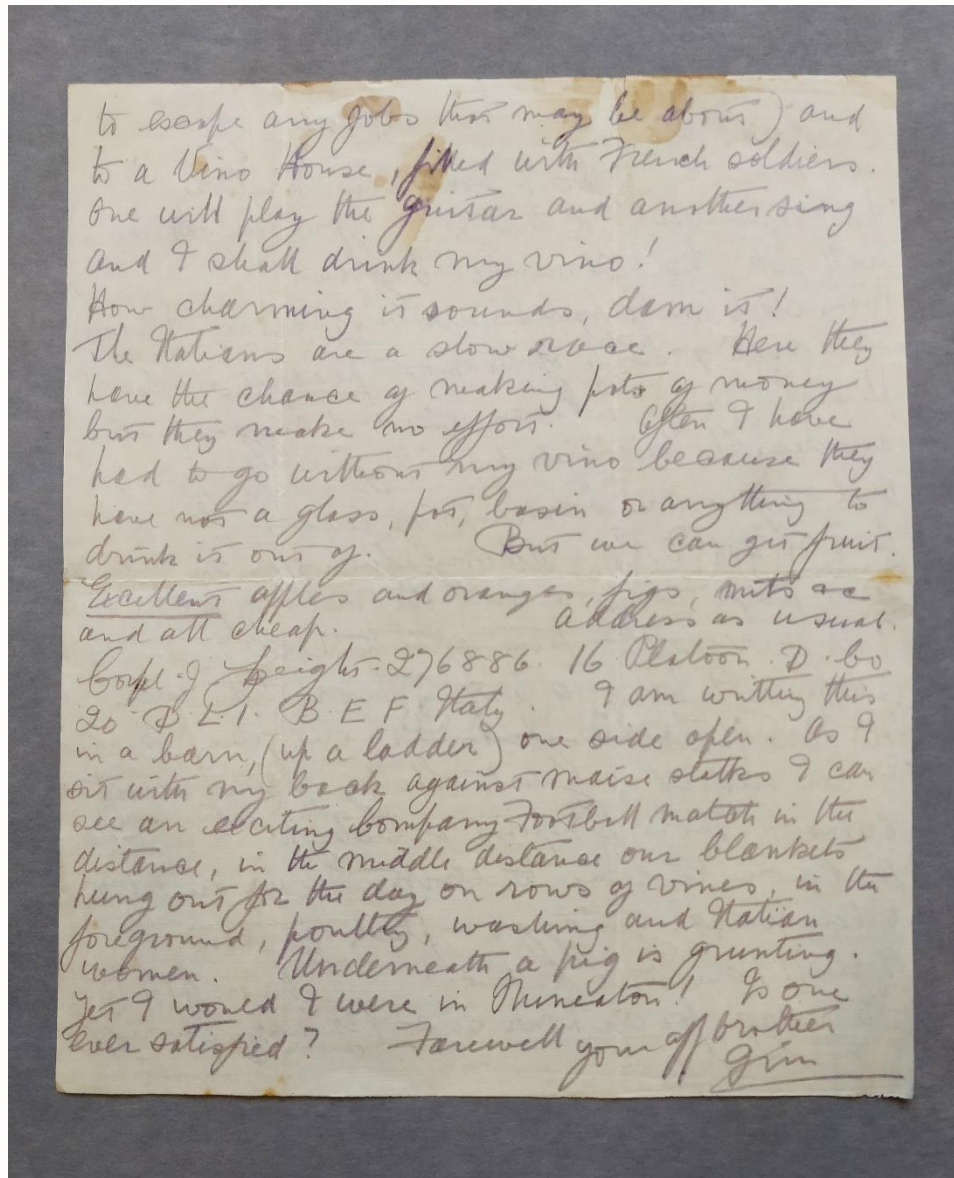 to escape any jobs that may be about) and
to a Vino House, filled with French soldiers.
One will play the guitar and another sing
and I shall drink my vino!
How charming it sounds, dam it!
The Italians are a slow race. Here they
have the chance of making pots of money
but they make no effort. Often I have
had to go without my vino because they
have not a glass, pot, basin or anything to
drink it out of. But we can get fruit.
Excellent apples and oranges, figs, nuts &c
and all cheap. Address as usual.
Corpl. J. Speight. 276886. 16 Platoon. D. Co
20 D.L.I. B E F Italy. I am writing this
in a barn, (up a ladder) one side open. As I
sit with my back against maise stalks I can
see an exciting Company Football match in the
distance, in the middle distance our blankets
hung out for the day on rows of vines, in the
foreground, poultry, washing and Italian
women. Underneath a pig is grunting.
Yet I would I were in Nuneaton! Is one
ever satisfied? Farewell your aff brother
Jim